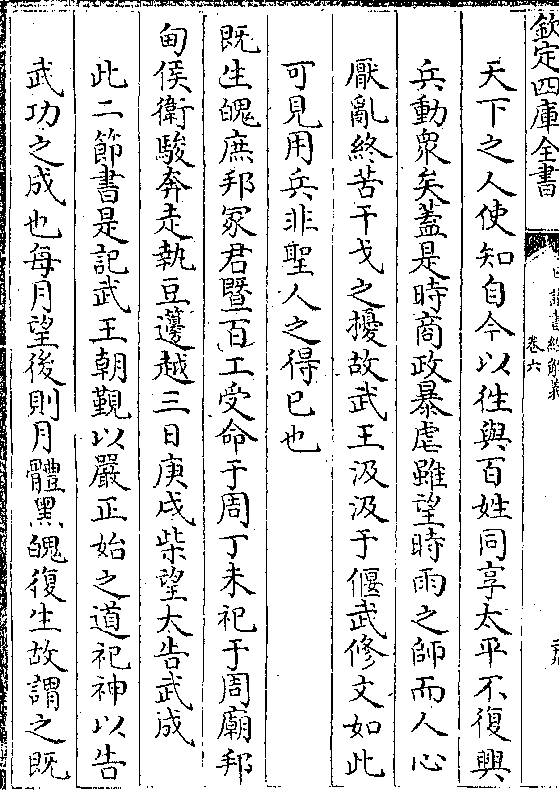 欽定四庫全書
日講書經解義
卷六
天下之人使知自今以徃與百姓同享太平不復興
兵動衆矣蓋是時商政暴虐雖望時雨之師而人心
厭亂終苦干戈之擾故武王汲汲于偃武修文如此
可見用兵非聖人之得已也
既生魄庶邦冢君暨百工受命于周丁未祀于周廟邦
甸侯衛駿奔走執豆籩越三日庚戌柴望大告武成
此二節書是記武王朝覲以嚴正始之道祀神以告
武功之成也每月望後則月體黑魄復生故謂之既